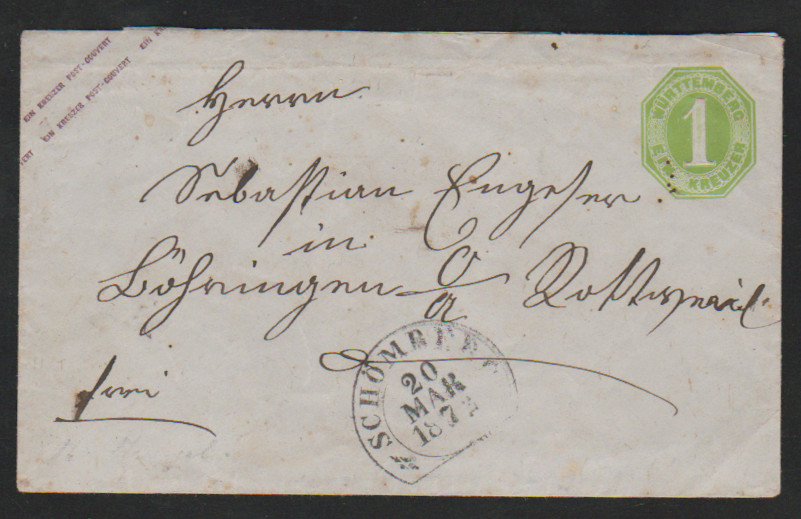 EIN KREUZER POST-COUVERT
EIN KREUZER POST-COUVERT
EIN K
VERT
WÜRTTEMBERG
1
EIN KREUZER
Herrn
Sebastian Engeser
in
Böhringen O/a Rottweil.
frei
SCHÖMBERG
20
MAR
187